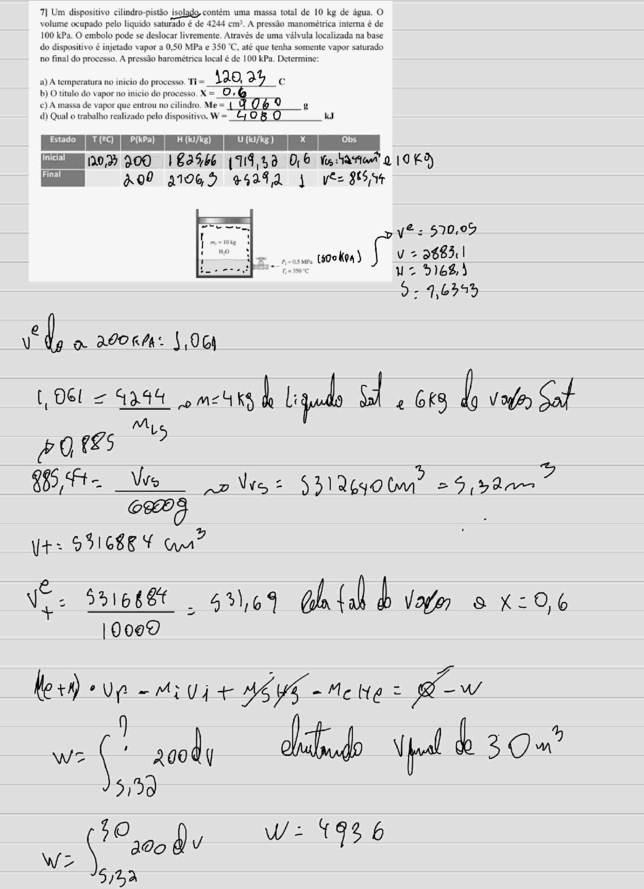 7] Um dispositivo cilindro-pistão isolado, contém uma massa total de 10 kg de água. O
volume ocupado pelo liquido saturado é de 4244 cm³. A pressão manométrica interna é de
100 kPa. O embolo pode se deslocar livremente. Através de uma válvula localizada na base
do dispositivo é injetado vapor a 0,50 MPa e 350 °C, até que tenha somente vapor saturado
no final do processo. A pressão barométrica local é de 100 kPa. Determine:
a) A temperatura no inicio do processo. Ti = 120,23 C
b) O titulo do vapor no inicio do processo. X = 0.6
c) A massa de vapor que entrou no cilindro. Me = 19060 g
d) Qual o trabalho realizado pelo dispositivo. W = 4080 kJ
Estado T (ºC) P(kPa) H (kJ/kg) U (kJ/kg) X Obs
Inicial 120,23 200 1825,66 1719,32 0,6 Vls: 4244cm³ e 10Kg
Final 200 2706,3 2529,2 1 Vᵉ= 885,44
m₁ = 10 kg
H₂O
Pₑ = 0,5 MPa (500KPA)
Tₑ = 350 °C
Vᵉ= 570,05
V = 2883,1
H = 3168,1
S = 7,6343
Vᵉ do a 200KPA: 1,061
1,061 = 4244 / MLS → M=4Kg de liquido Sat e 6Kg de vapor Sat
0,885
885,44 = Vvs / 6000g → Vvs = 5312640 cm³ = 5,32m³
Vt = 5316884 cm³
Vᵉt = 5316884 / 10000 = 531,69 Pela tab do vapor x = 0,6
(Me+Mi) • Uf - MiUi + MsHs - MeHe = Q - W
W = ∫ 5,32 ? 200dv chutando Vfinal de 30m³
W = ∫ 5,32 30 200dv W = 4936